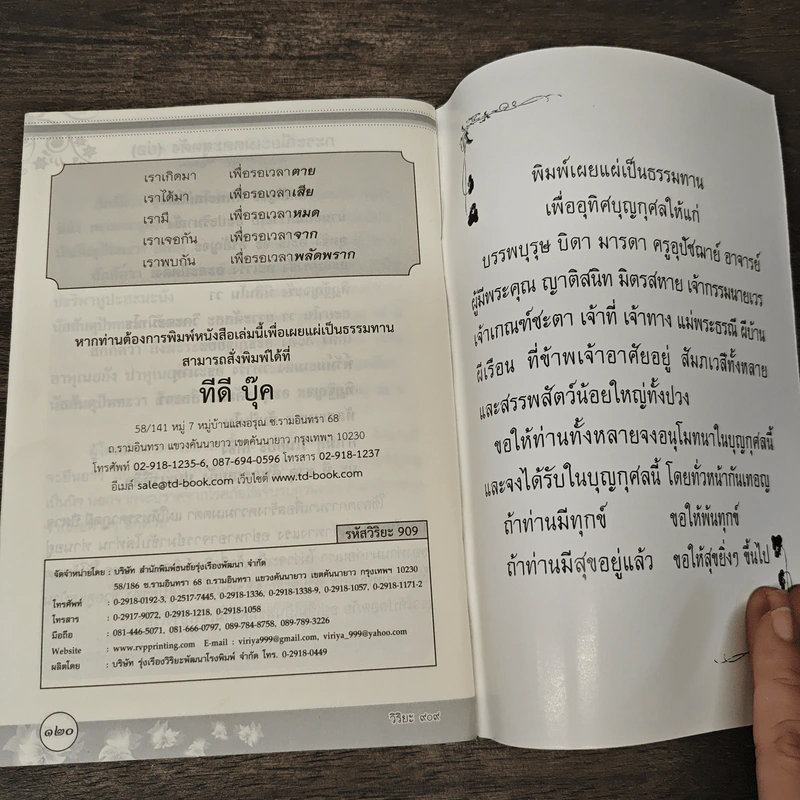 เราเกิดมา เพื่อรอเวลาตาย
เราได้มา เพื่อรอเวลาเสีย
เรามี เพื่อรอเวลาหมด
เราเจอกัน เพื่อรอเวลาจาก
เราพบกัน เพื่อรอเวลาพลัดพราก
หากท่านต้องการพิมพ์หนังสือเล่มนี้เพื่อเผยแผ่เป็นธรรมทาน
สามารถสั่งพิมพ์ได้ที่
ทีดี บุ๊ค
58/141 หมู่ 7 หมู่บ้านแสงอรุณ ซ.รามอินทรา 68
ถ.รามอินทรา แขวงคันนายาว เขตคันนายาว กรุงเทพฯ 10230
โทรศัพท์ 02-918-1235-6, 087-694-0596 โทรสาร 02-918-1237
อีเมล์ sale@td-book.com เว็บไซต์ www.td-book.com
รหัสวิริยะ 909
จัดจำหน่ายโดย : บริษัท สำนักพิมพ์ธนธัชรุ่งเรืองพัฒนา จำกัด
58/186 ซ.รามอินทรา 68 ถ.รามอินทรา แขวงคันนายาว เขตคันนายาว กรุงเทพฯ 10230
โทรศัพท์ : 0-2918-0192-3, 0-2517-7445, 0-2918-1336, 0-2918-1338-9, 0-2918-1057, 0-2918-1171-2
โทรสาร : 0-2917-9072, 0-2918-1218, 0-2918-1058
มือถือ : 081-446-5071, 081-666-0797, 089-784-8758, 089-789-3226
Website : www.rvpprinting.com E-mail : viriya999@gmail.com, viriya_999@yahoo.com
ผลิตโดย : บริษัท รุ่งเรืองวิริยะพัฒนาโรงพิมพ์ จำกัด โทร. 0-2918-0449
๑๒๐
วิริยะ ๙๐๙
พิมพ์เผยแผ่เป็นธรรมทาน
เพื่ออุทิศบุญกุศลให้แก่
บรรพบุรุษ บิดา มารดา ครูอุปัชฌาย์ อาจารย์
ผู้มีพระคุณ ญาติสนิท มิตรสหาย เจ้ากรรมนายเวร
เจ้าเกณฑ์ชะตา เจ้าที่ เจ้าทาง แม่พระธรณี ผีบ้าน
ผีเรือน ที่ข้าพเจ้าอาศัยอยู่ สัมภเวสีทั้งหลาย
และสรรพสัตว์น้อยใหญ่ทั้งปวง
ขอให้ท่านทั้งหลายจงอนุโมทนาในบุญกุศลนี้
และจงได้รับในบุญกุศลนี้ โดยทั่วหน้ากันเทอญ
ถ้าท่านมีทุกข์ ขอให้พ้นทุกข์
ถ้าท่านมีสุขอยู่แล้ว ขอให้สุขยิ่งๆ ขึ้นไป